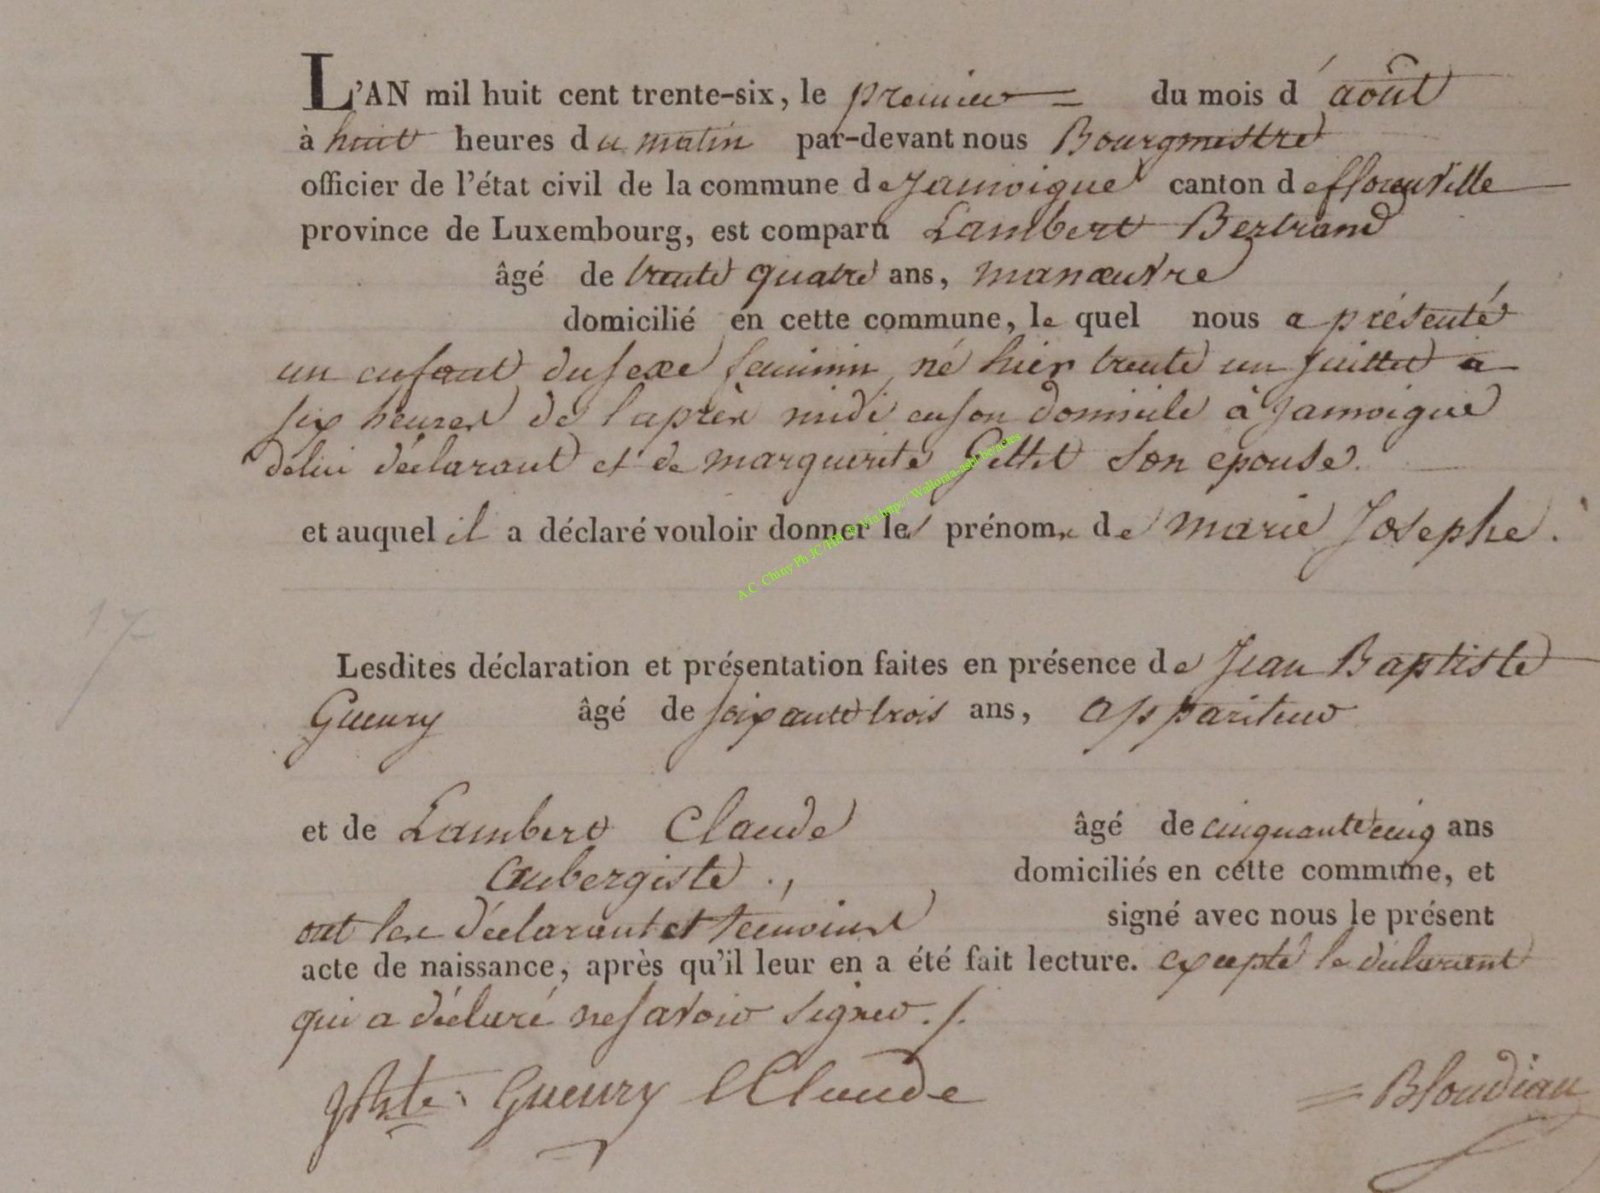 L'AN mil huit cent trente-six, le premier = du mois d'août
à huit heures du matin par-devant nous Bourgmestre
officier de l'état civil de la commune de Jamoigne canton de florenville
province de Luxembourg, est comparu Lambert Bertrand
âgé de trente quatre ans, manœuvre
domicilié en cette commune, le quel nous a présenté
un enfant du sexe feminin, né hier trente un juillet à
six heures de l'après midi en son domicile à Jamoigne
de lui déclarant et de marguerite Gillet son epouse.
et auquel il a déclaré vouloir donner les prénoms de marie Josephe.
A.C. Chiny Ph JC
17
Lesdites déclaration et présentation faites en présence de Jean Baptiste
Gueury âgé de soixante trois ans, appariteur
et de Lambert Claude âgé de cinquante cinq ans
aubergiste., domiciliés en cette commune, et
ont les déclarant et témoins signé avec nous le présent
acte de naissance, après qu'il leur en a été fait lecture. excepté le déclarant
qui a déclaré ne savoir signer./.
Gueury LClaude = Bloudiau